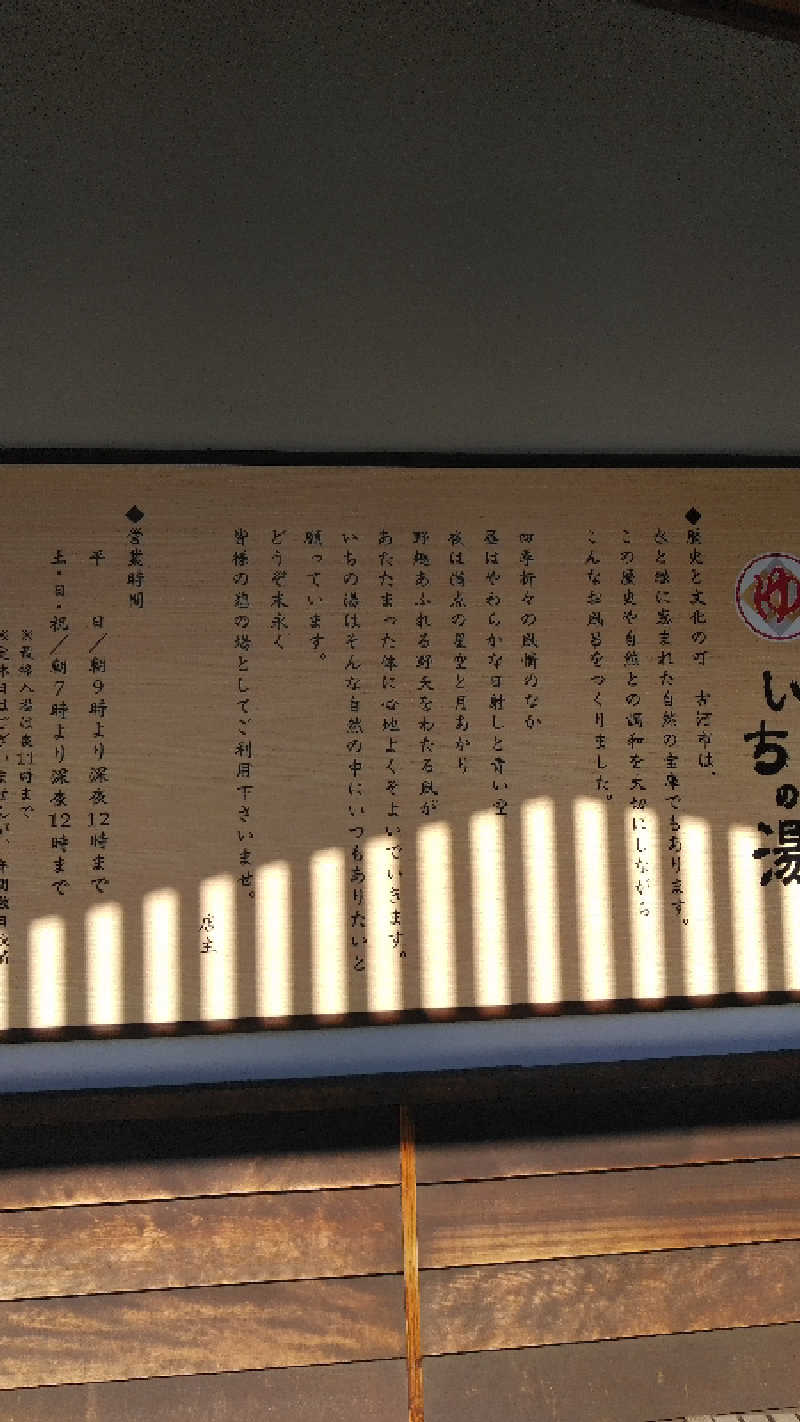 ゆ
いちの湯
◆歴史と文化の町 古河市は、
水と緑に恵まれた自然の宝庫でもあります。
この歴史や自然との調和を大切にしながら
こんなお風呂をつくりました。
四季折々の風情のなか
昼はやわらかな日射しと青い空
夜は満点の星空と月あかり
野趣あふれる野天をわたる風が
あたたまった体に心地よくそよいでいきます。
いちの湯はそんな自然の中にいつもありたいと
願っています。
どうぞ末永く
皆様の憩の場としてご利用下さいませ。
店主
◆営業時間
平 日／朝9時より深夜12時まで
土・日・祝／朝7時より深夜12時まで
※最終入湯は夜11時まで
※定休日はございませんが、年間数日